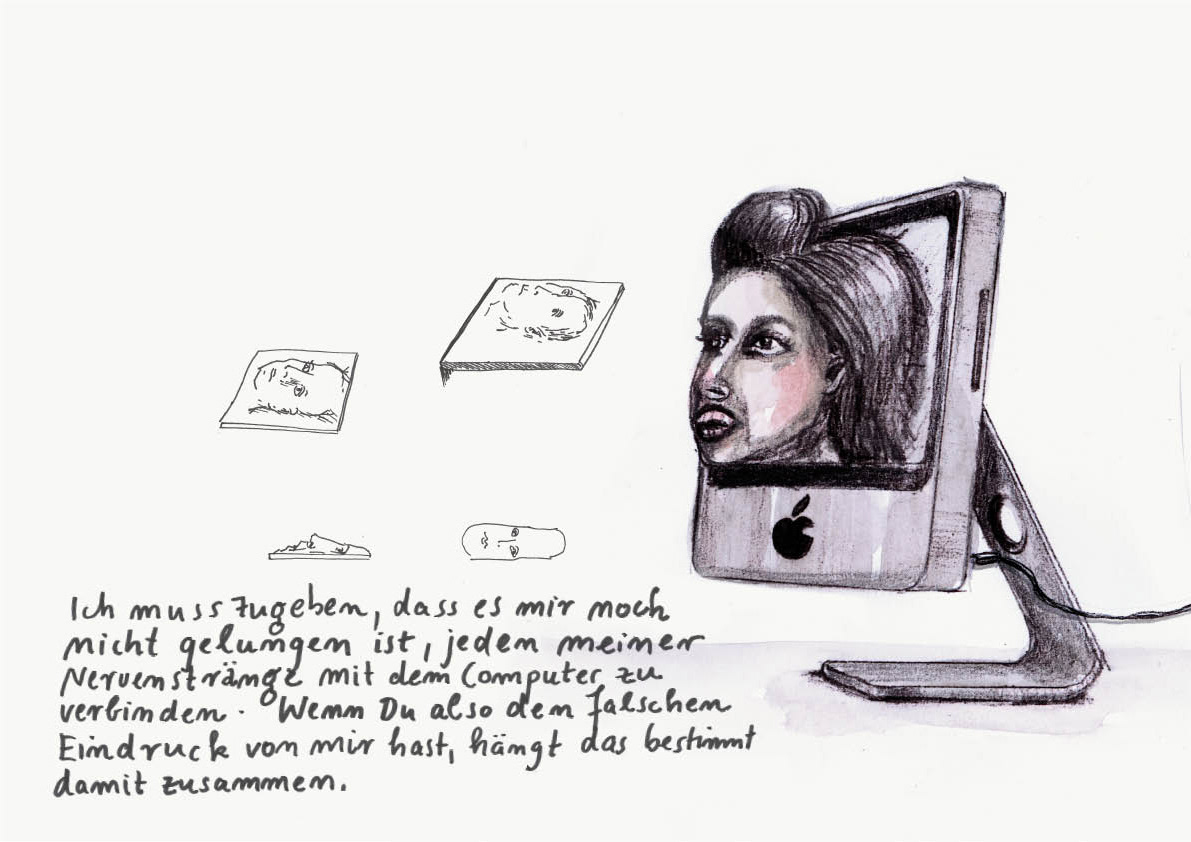 Ich muss zugeben, dass es mir noch
nicht gelungen ist, jeden meiner
Nervenstränge mit dem Computer zu
verbinden. Wenn Du also den falschen
Eindruck von mir hast, hängt das bestimmt
damit zusammen.